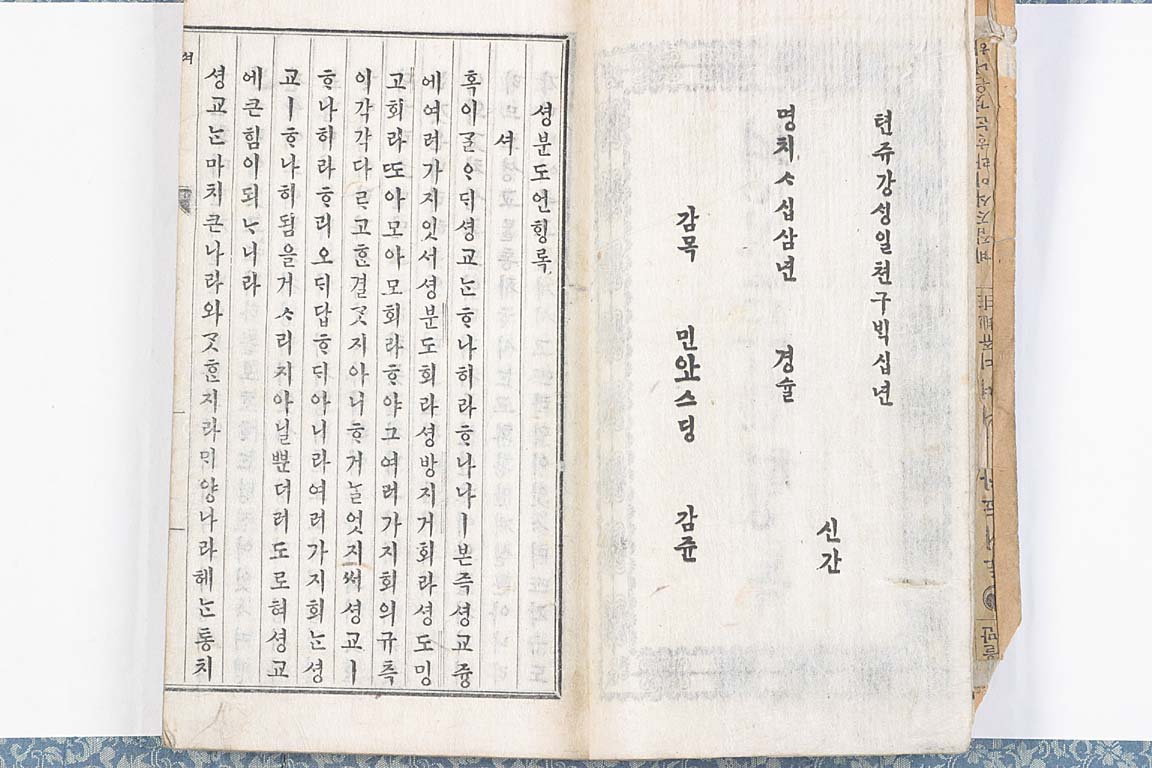 텬쥬강셩일쳔구ᄇᆡᆨ십년
신간
명치ᄉ십삼년 경슐
감목 민아오스딩 감쥰
셩분도언ᄒᆡᆼ록
셔
혹이ᄀᆞᆯᄋᆞᄃᆡ셩교ᄂᆞᆫᄒᆞ나히라ᄒᆞ나나ㅣ본즉셩교즁
에여러가지잇서셩분도회라셩방지거회라셩도밍
고회라ᄯᅩ아모아모회라ᄒᆞ야그여러가지회의규측
이각각다ᄅᆞ고ᄒᆞᆫ결ᄀᆞᆺ지아니ᄒᆞ거ᄂᆞᆯ엇지써셩교ㅣ
ᄒᆞ나히라ᄒᆞ리오ᄃᆡ답ᄒᆞᄃᆡ아니라여러가지회ᄂᆞᆫ셩
교ㅣᄒᆞ나히됨을거ᄉᆞ리지아닐ᄲᅮᆫ더러도로혀셩교
에큰힘이되ᄂᆞ니라
셩교ᄂᆞᆫ마치큰나라와ᄀᆞᆺᄒᆞᆫ지라ᄆᆡ양나라헤ᄂᆞᆫ통치
셔